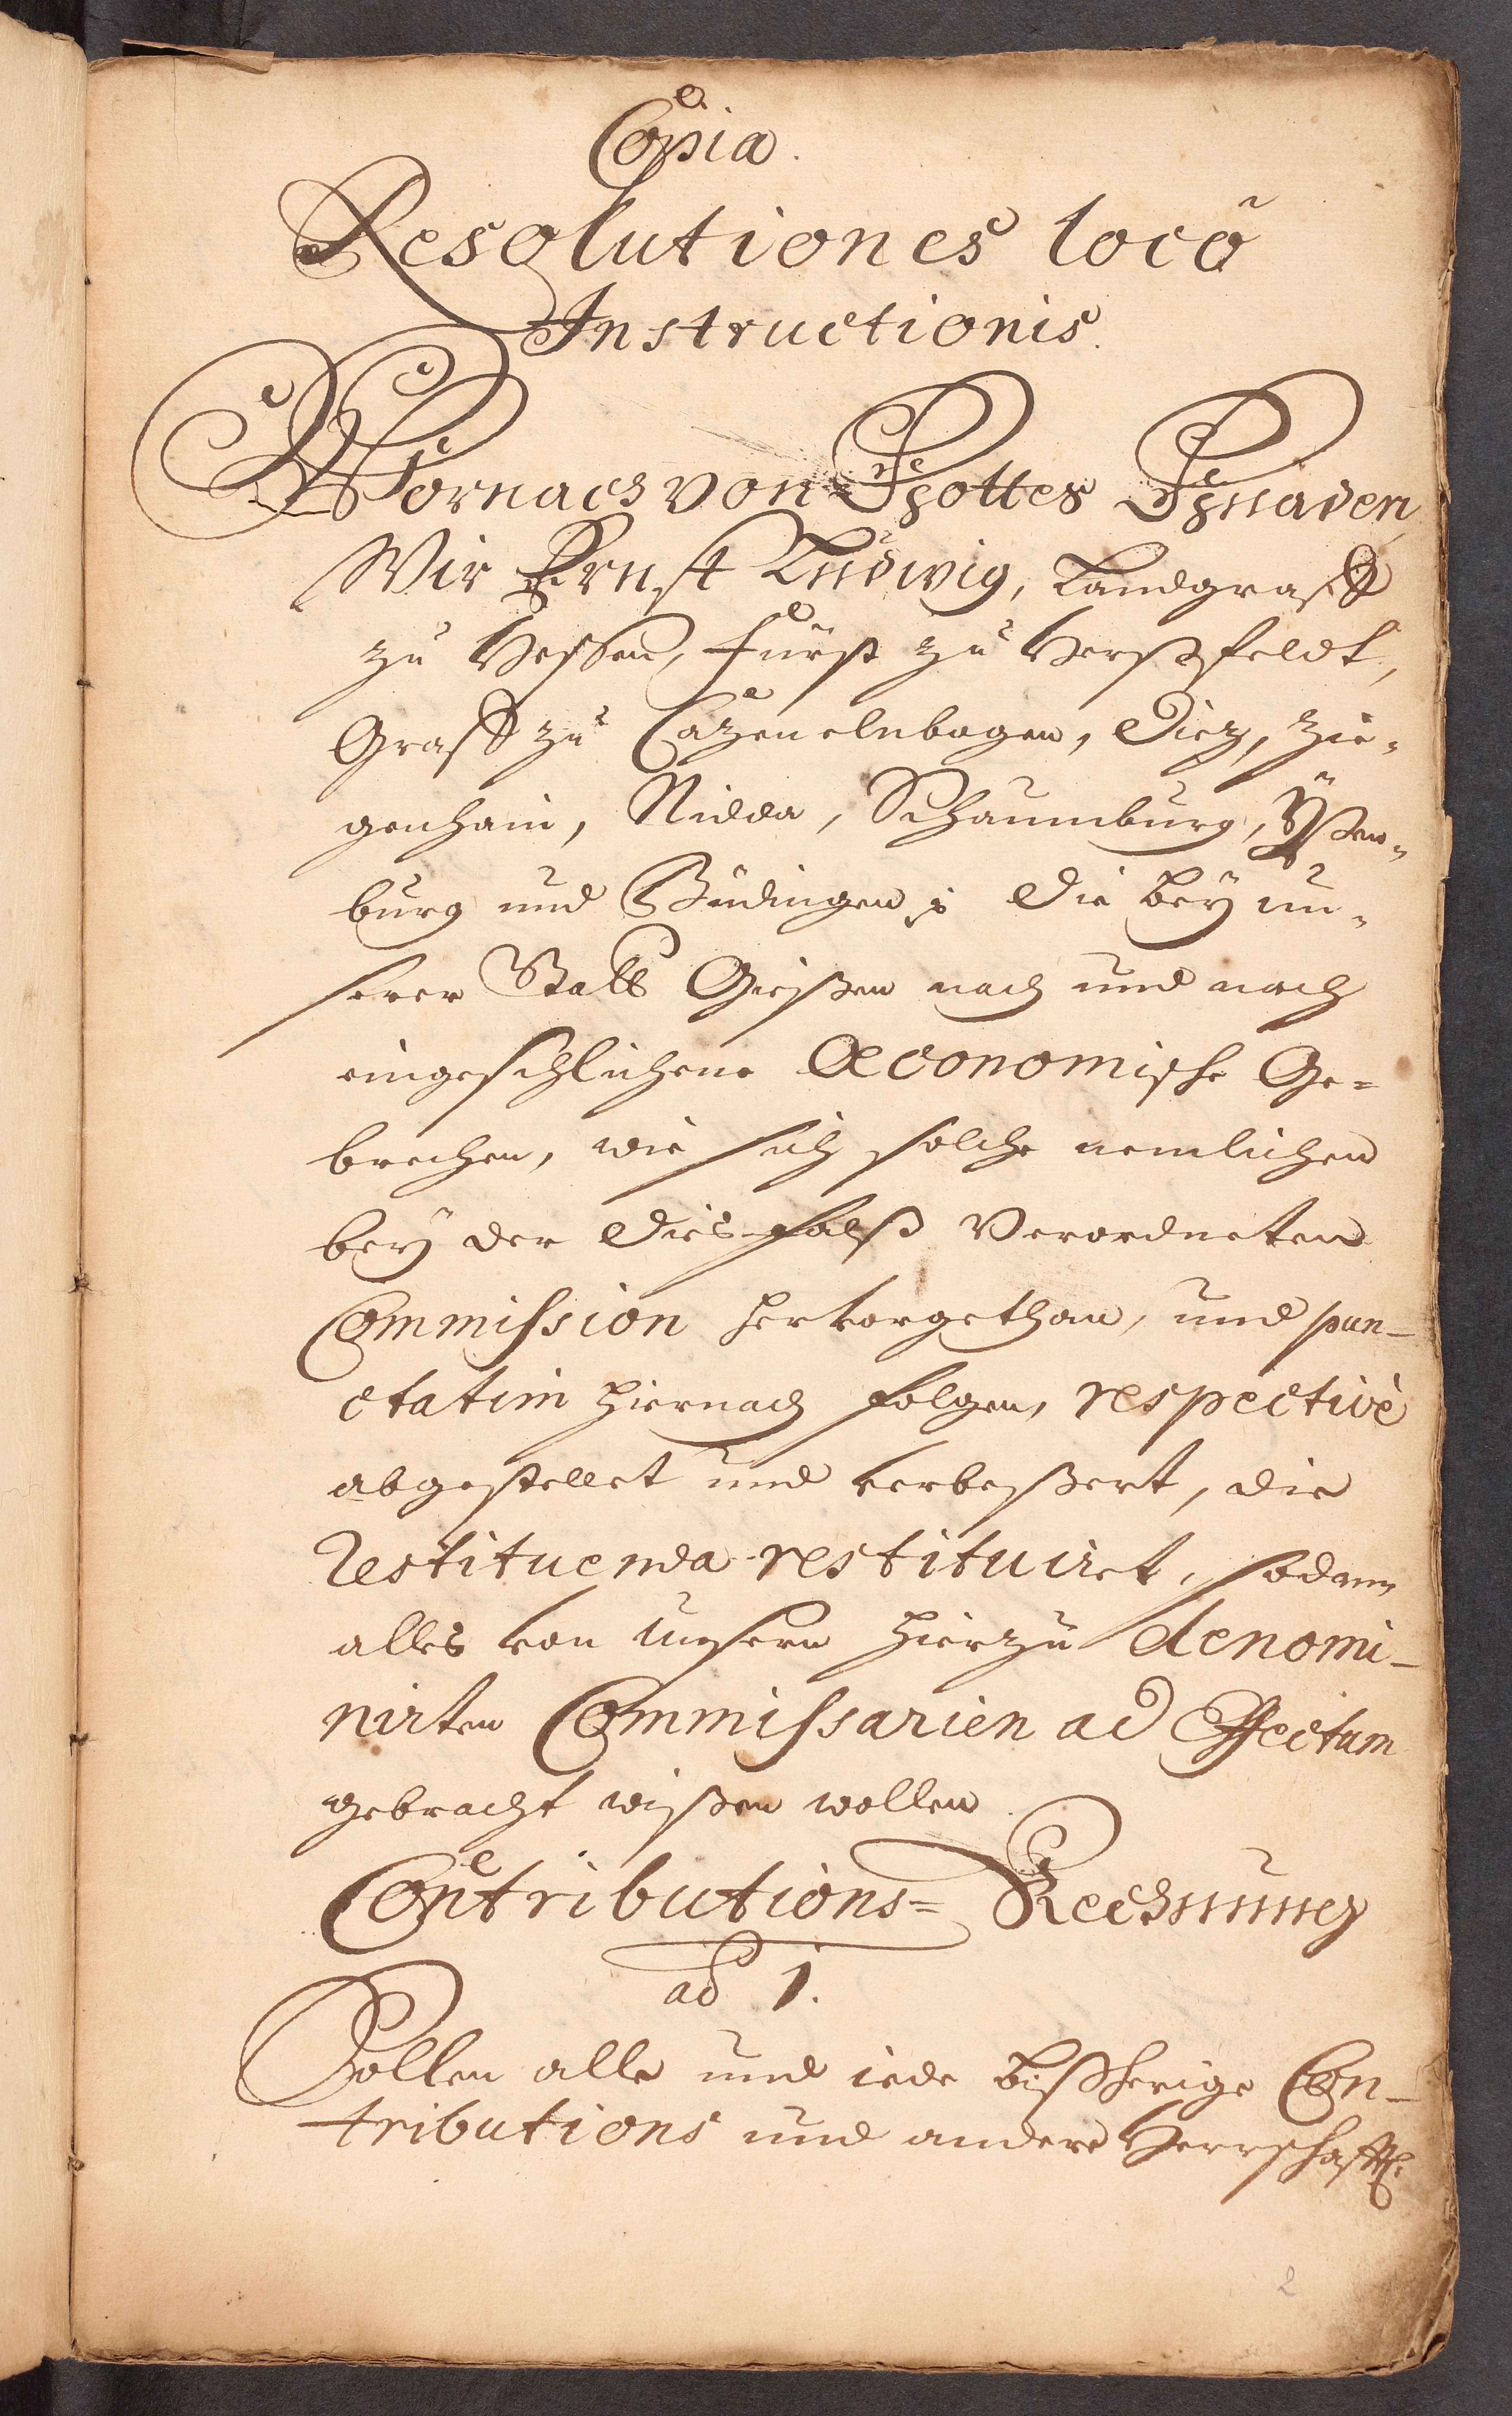 Copia.
Resolutiones locô
Instructionis.
Wornach von Gottes Gnaden
Wir Ernst Ludwig, Landgraff
zu Hessen, Fürst zu Herßfeldt,
Graff zu Cazenelnbogen, Diez, Zie-
genhain, Nidda, Schaumburg, Ÿßen-
burg und Büdingen p. die beÿ un-
serer Statt Gießen nach und nach
eingeschlichene Oeconomische Ge-
brechen, wie sich solche nemlichen
beÿ der dies-falß Verordneten
Commission hervorgethan, und pun-
ctatim hiernach folgen, respectivè
abgestellet und verbeßert, die
Restituenda restituiret, sodann
alles von unsern hierzu denomi-
nirten Commissarien ad Effectum
gebracht wißen wollen.
Contributions- Rechnung
ad 1.
Sollen alle und iede bißherige Con-
tributions und andere Herrschafftl.
2